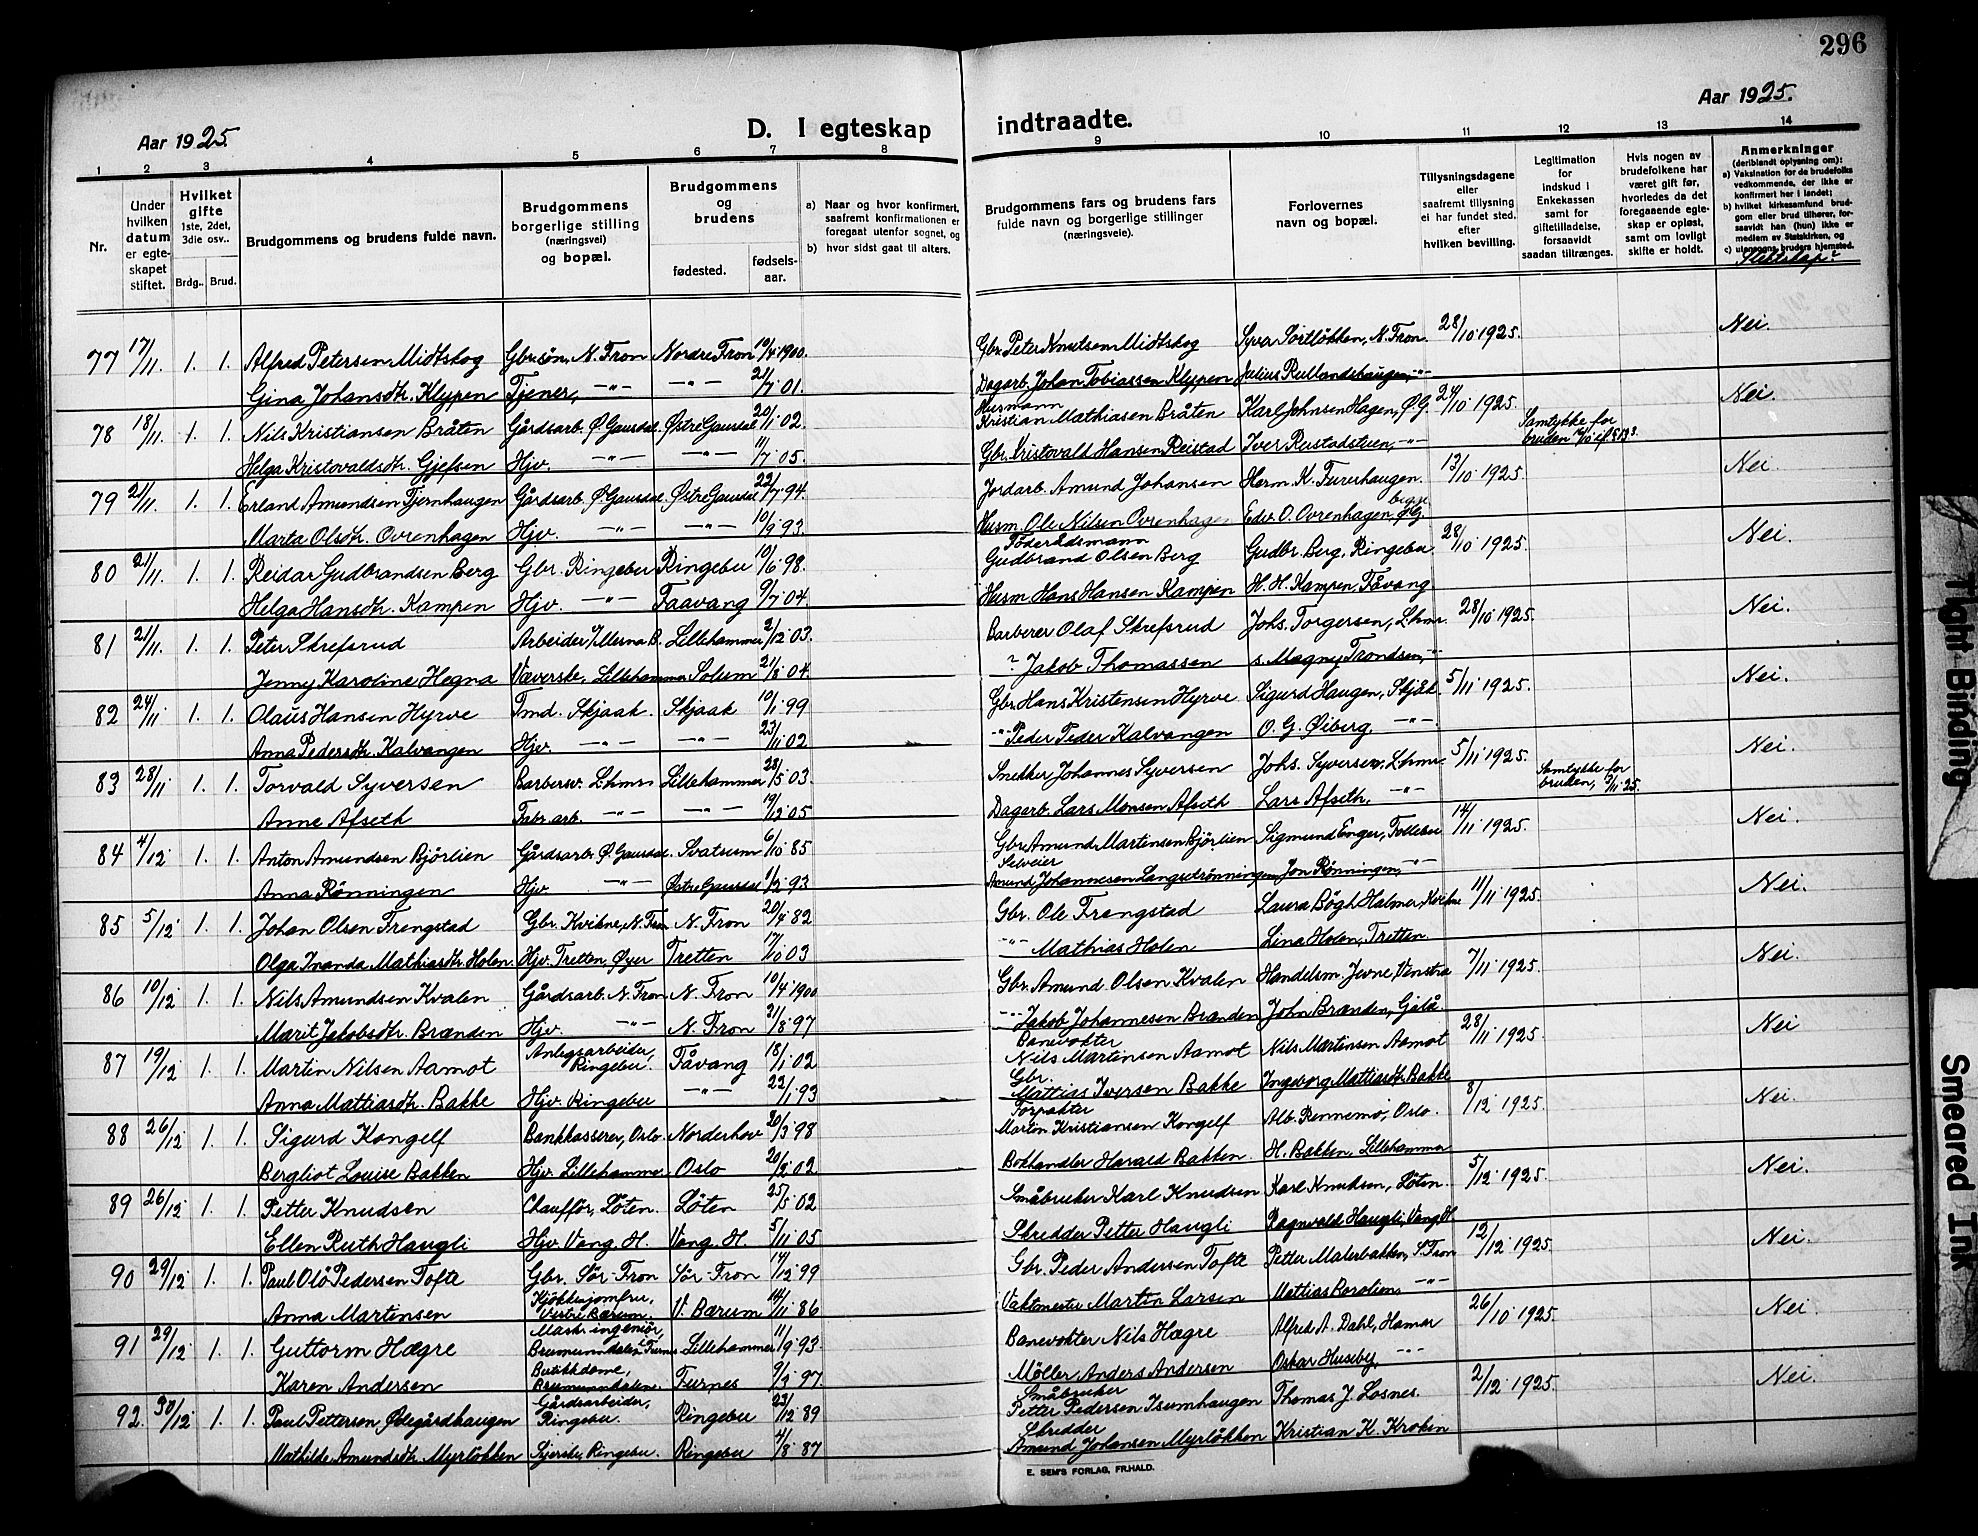 296
Aar 1925.
Aar 1925.
D. I egteskap indtraadte.
1 2 3 4 5 6 7 8 9 10 11 12 13 14
Nr.
Under hvilken datum er egteskapet stiftet.
Hvilket gifte 1ste, 2det, 3die osv..
Brdg.. Brud.
Brudgommens og brudens fulde navn.
Brudgommens borgerlige stilling (næringsvei) og bopæl.
Brudgommens og brudens
fødested. fødselsaar.
a) Naar og hvor konfirmert, saafremt konfirmationen er foregaat utenfor sognet, og
b) hvor sidst gaat til alters.
Brudgommens fars og brudens fars fulde navn og borgerlige stillinger (næringsveie).
Forlovernes navn og bopæl.
Tillysningsdagene eller saafremt tillysning ei har fundet sted. efter hvilken bevilling.
Legitimation for indskud i Enkekassen samt for giftetilladelse, forsaavidt saadan tiltrænges.
Hvis nogen av brudefolkene har været gift før, hvorledes da det foregaaende egteskap er opløst, samt om lovligt skifte er holdt.
Anmerkninger (deriblandt oplysning om):
a) Vaksination for de brudefolks vedkommende, der ikke er konfirmert her i landet;
b) hvilket kirkesamfund brudgom eller brud tilhører, forsaavidt han (hun) ikke er medlem av Statskirken, og
c) utensogns bruders hjemsted.
Slektskap?
77 17/11. 1. 1. Alfred Petersen Midtskog Gbr.søn, N. Fron Nordre Fron 10/4 1900. Gbr. Peter Knutsen Midtskog Syver Sortløkken, N. Fron. 28/10 1925. Nei.
Gina Johansdtr. Klypen Tjener, —"— —"— 21/7 01. Dagarb. Johan Tobiassen Klypen Julius Rullandshaugen, —"—
78 18/11. 1. 1. Nils Kristiansen Bråten Gårdsarb. Ø. Gausdal. Østre Gausdal 20/1 02. Husmann Kristian Mathiasen Bråten Karl Johnsen Hagen, Ø.G. 24/10 1925. Nei.
Helga Kristovaldsdtr. Gjefsen Hjv. —"— —"— 11/7 05. Gbr. Kristovald Hansen Reistad Iver Reistadstuen, —"— Samtykke for bruden
79 21/11. 1. 1. Erland Amundsen Tjernhaugen Gårdsarb. Ø. Gausdal. Østre Gausdal 22/7 94. Jordarb. Amund Johansen Herm. K. Furuhaugen. 13/10 1925. Nei.
Marta Olsdtr. Ovrenhagen Hjv. —"— —"— 10/9 93. Husm. Ole Nilsen Ovrenhagen Edv. O. Ovrenhagen, begge Ø.G.
80 21/11. 1. 1. Reidar Gudbrandsen Berg Gbr. Ringebu Ringebu 10/6 98. Føderådsmann Gudbrand Olsen Berg Gudbr. Berg, Ringebu 28/10 1925. Nei.
Helga Hansdtr. Kampen Hjv. —"— Faavang 9/7 04. Husm. Hans Hansen Kampen H. H. Kampen, Fåvang.
81 21/11. 1. 1. Peter Skrefsrud Arbeider v/ Lillehammer 2/12 03. Barberer Olaf Skrefsrud Johs. Torgersen, Lhmr. 28/10 1925. Nei.
Jenny Karoline Hegna Væverske, Lillehammer Solum 21/8 04. ? Jakob Thomassen s. Magny Trondsen, —"—
82 24/11. 1. 1. Olaus Hansen Hyrve Tmd. Skjaak. Skjaak 10/1 99 Gbr. Hans Kristensen Hyrve Sigurd Haugen, Skjåk 5/11 1925. Nei.
Anna Pedersdtr. Kalvangen Hjv. —"— —"— 23/11 02 —"— Peder Peder Kalvangen O. G. Øiberg, —"—
83 28/11 1. 1. Torvald Syversen Barbersv. Lhmr. Lillehammer 28/5 03. Snekker Johannes Syversen Johs. Syversen, Lhmr. 5/11 1925. Nei.
Anne Afseth Fabr. arb. —"— —"— 19/12 05 Dagarb. Lars Monsen Afseth Lars Afseth, —"— Samtykke for bruden, 5/11 25.
84 4/12 1. 1. Anton Amundsen Bjørlien Gårdsarb. Ø. Gausdal. Svatsum 6/10 85 Gbr. Amund Martinsen Bjørlien Sigmund Enger, Follebu 14/11 1925. Nei.
Anna Rønningen Hjv. —"— Østre Gausdal 1/2 93 Selveier Amund Johannesen Langsetrønningen Jon Rønningen, —"—
85 5/12 1. 1. Johan Olsen Frengstad Gbr. Kvikne, N. Fron N. Fron 20/4 82 Gbr. Ole Frengstad Laura Bøgh Halmer, Kvikne 11/11 1925. Nei.
Olga Inanda Mathiasdtr. Holen. Hjv. Tretten, Øyer Tretten 17/10 03 —"— Mathias Holen Lina Holen, Tretten.
86 10/12 1. 1. Nils Amundsen Kvalen Gårdsarb. N. Fron N. Fron 10/4 1900 Gbr. Amund Olsen Kvalen Handelsm. Jevne, Vinstra 7/11 1925. Nei.
Marit Jakobsdtr. Brænden Hjv. —"— N. Fron 21/8 97 —"— Jakob Johannesen Brænden John Brænden, Gålå
87 19/12 1. 1. Martin Nilsen Aamot Anlegsarbeider, Ringebu. Fåvang 18/1 02 Banevokter Nils Martinsen Aamot Nils Martinsen Aamot 28/11 1925. Nei
Anna Mattiasdtr. Bakke Hjv. Ringebu —"— 22/1 93 Gbr. Mattias Iversen Bakke Ingeborg Mattiasdtr. Bakke
88 26/12 1. 1. Sigurd Kongelf Bankkasserer, Oslo Norderhov 20/3 98 Forpakter Martin Kristiansen Kongelf Alb. Rennemo, Oslo. 8/12 1925. Nei.
Bergliot Louise Bakken Hjv. Lillehammer Oslo 20/2 02 Bokhandler Harald Bakken. H. Bakken, Lillehammer
89 26/12 1. 1. Petter Knudsen Chauffør, Løten. Løten 25/5 02 Småbruker Karl Knudsen Karl Knudsen, Løten. 5/12 1925. Nei.
Ellen Ruth Haugli Hjv. Vang. H. Vang. H. 5/11 05 Skredder Petter Haugli Ragnvald Haugli, Vang. H.
90 29/12 1. 1. Paul Olø Pedersen Tofte Gbr. Sør-Fron Sør-Fron 14/12 99 Gbr. Peder Andersen Tofte Petter Malerbakken, S. Fron 12/12 1925. Nei.
Anna Martinsen Kjøkkenjomfru, Vestre Bærum V. Bærum 14/11 86 Vaktmester Martin Larsen Mathias —"—
91 29/12 1. 1. Guttorm Hægre Mask. ingeniør, Brumunddalen, Furnes Lillehammer 11/9 93 Banevokter Nils Hægre Alfred A. Dahl, Hamar 26/10 1925. Nei.
Karen Andersen Butikkdame, Brumunddalen. Furnes 9/2 97. Møller Anders Andersen Oskar Huseby, —"—
92. 30/12 1. 1. Paul Pettersen Ødegårdhaugen Gårdsarbeider, Ringebu. Ringebu 23/12 89 Småbruker Petter Pedersen Isumhaugen Thomas J. Losnes. 2/12 1925. Nei.
Mathilde Amundsdtr. Myrløkken Sjerske, Ringebu. Ringebu 4/8 87 Skredder Amund Johansen Myrløkken Kristian K. Kroken
E. SEM'S FORLAG, FR.HALD.
Tight Binding
Smeared Ink